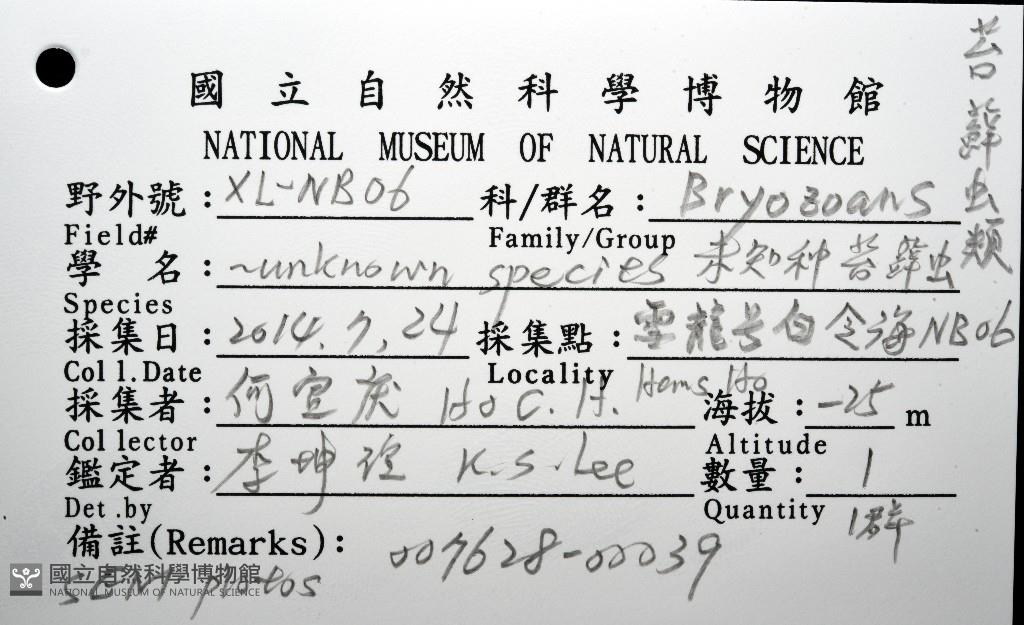 苔蘚虫類
國立自然科學博物館
NATIONAL MUSEUM OF NATURAL SCIENCE
野外號: XL-NB06 科/群名: Bryozoans
Field# Family/Group
學名: ~unknown species 未知种苔蘚虫
Species
採集日: 2014.7,24 採集點: 雪龍号白令海NB06
Coll.Date Locality
採集者: 何宣庆 Ho C.H. Hans Ho 海拔: -25 m
Collector Altitude
鑑定者: 李坤瑄 K.S.Lee 數量: 1
Det.by Quantity 1群
備註(Remarks): 007628-00039
photos
國立自然科學博物館
NATIONAL MUSEUM OF NATURAL SCIENCE